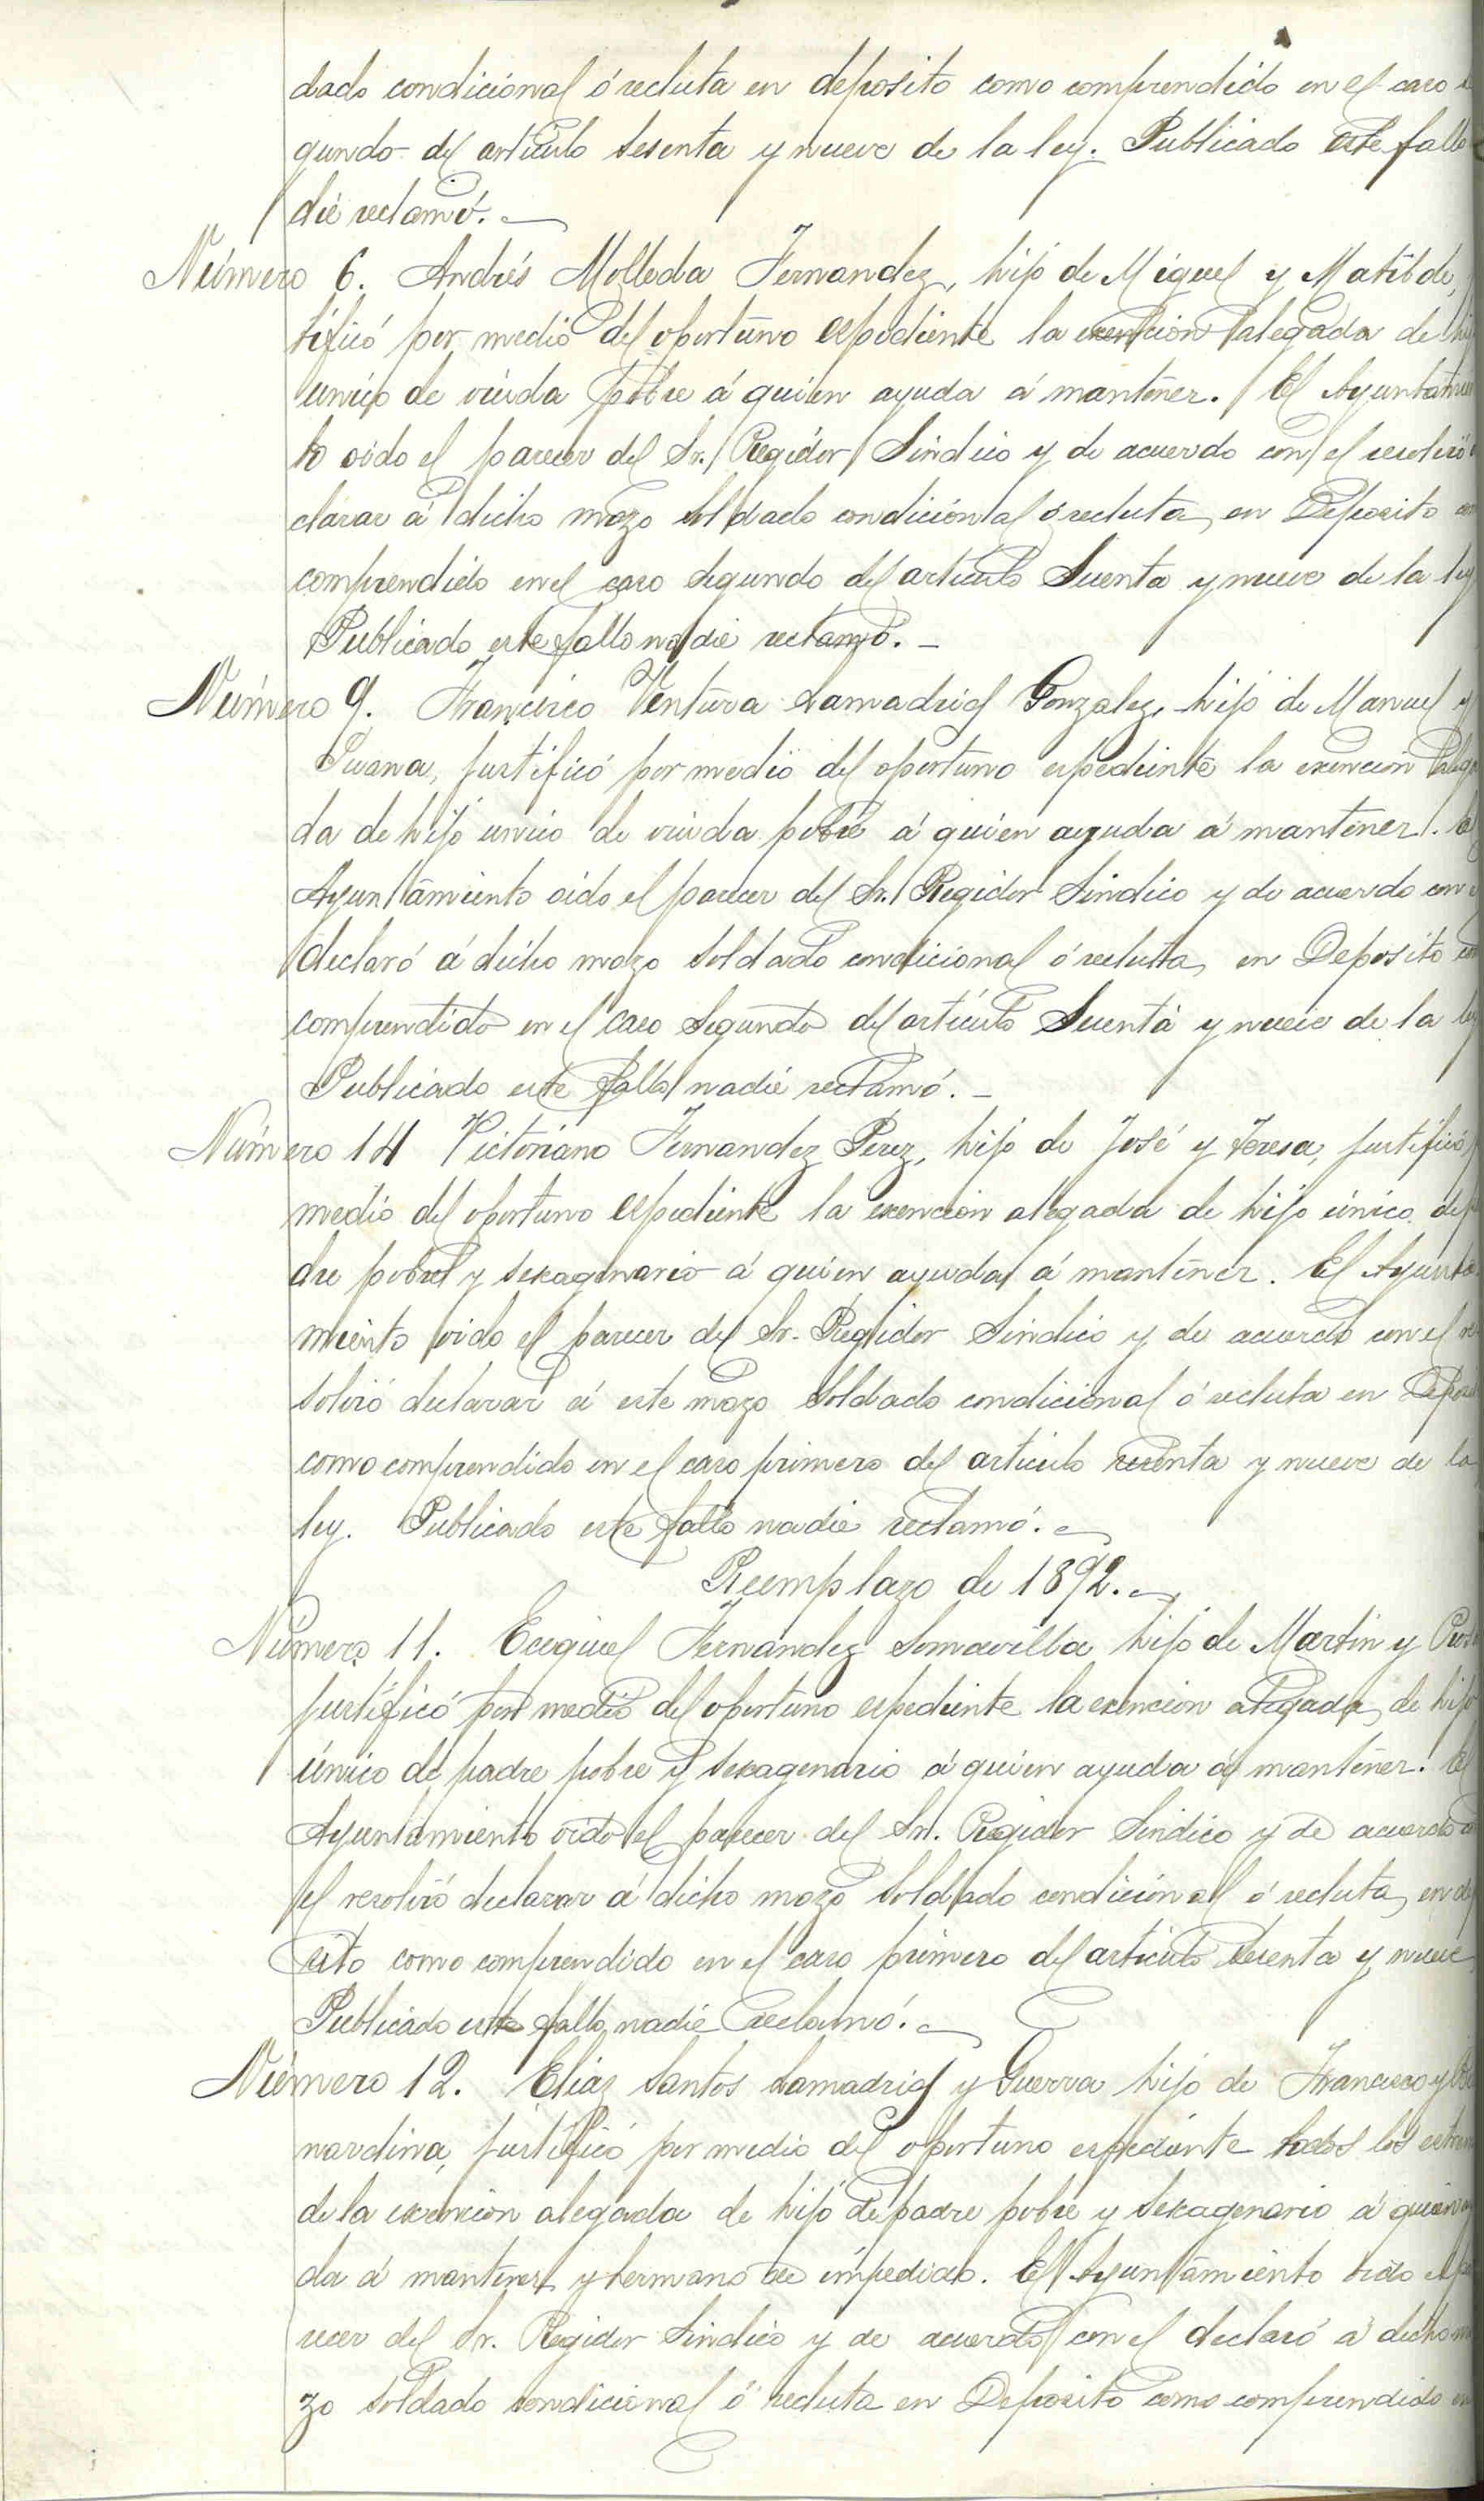 dado condiciónal ó recluta en deposito como comprendido en el caso
gundo del artículo sesenta y nueve de la ley. Publicado este fallo
die reclamó.
Número 6. Andrés Molleda Fernandez, hijo de Miguel y Matilde,
tificó por medio del oportuno espediente la exención alegada de hi
único de viuda pobre á quien ayuda á mantener. El Ayuntamien
to oido el parecer del Sr. Regidor Sindico y de acuerdo con el resolvió
clarar á dicho mozo soldado condiciónal ó recluta, en Deposito
comprendido en el caso segundo del artículo sesenta y nueve de la ley
Publicado este fallo nadie reclamó.
Número 9. Francisco Ventura Lamadrid Gonzalez, hijo de Manuel y
Juana, justificó por medio del oportuno espediente la exencion alega
da de hijo unico de viuda pobre á quien ayuda á mantener. El
Ayuntamiento oido el parecer del Sr. Regidor Sindico y de acuerdo con
declaró á dicho mozo soldado condicional ó recluta, en Deposito
comprendido en el caso segundo del artículo sesenta y nueve de la ley
Publicado este fallo nadie reclamó.
Número 14 Victoriano Fernandez Perez, hijo de José y Teresa, justificó
medio del oportuno espediente la exencion alegada de hijo único de
dre pobre y sexagenario á quien ayuda á mantener. El Ayunta
miento oido el parecer del Sr. Regidor Sindico y de acuerdo con el re
solvió declarar á este mozo soldado condicional ó recluta en Deposi
como comprendido en el caso primero del articulo sesenta y nueve de la
ley. Publicado este fallo nadie reclamó.
Reemplazo de 1892.
Número 11. Ecequiel Fernández Somavilla hijo de Martin y
justificó por medio del oportuno espediente la exencion alegada, de hijo
único de padre pobre y sexagenario á quien ayuda á mantener. El
Ayuntamiento oido el parecer del Sr. Regidor Sindico y de acuerdo
el resolvió declarar á dicho mozo soldado condiciónal ó recluta, en de
sito como comprendido en el caso primero del articulo sesenta y nueve
Publicado este fallo nadie reclamó.
Número 12. Eliaz Santos Lamadrid y Guerra hijo de Francisco y
nardina, justificó por medio del oportuno espediente todos los estrem
de la exencion alegada de hijo de padre pobre y sexagenario á quien
da á mantener y hermano de impedido. El Ayuntamiento oido el pa
recer del Sr. Regidor Sindico y de acuerdo con el declaró á dicho mo
zo soldado condicional ó recluta en Deposito como comprendido en